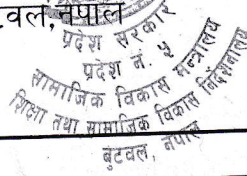 वल, नेपाल
प्रदेश सरकार
प्रदेश नं. ५
सामाजिक विकास मन्त्रालय
शिक्षा तथा सामाजिक विकास निर्देशनालय
बुटवल, नेपाल